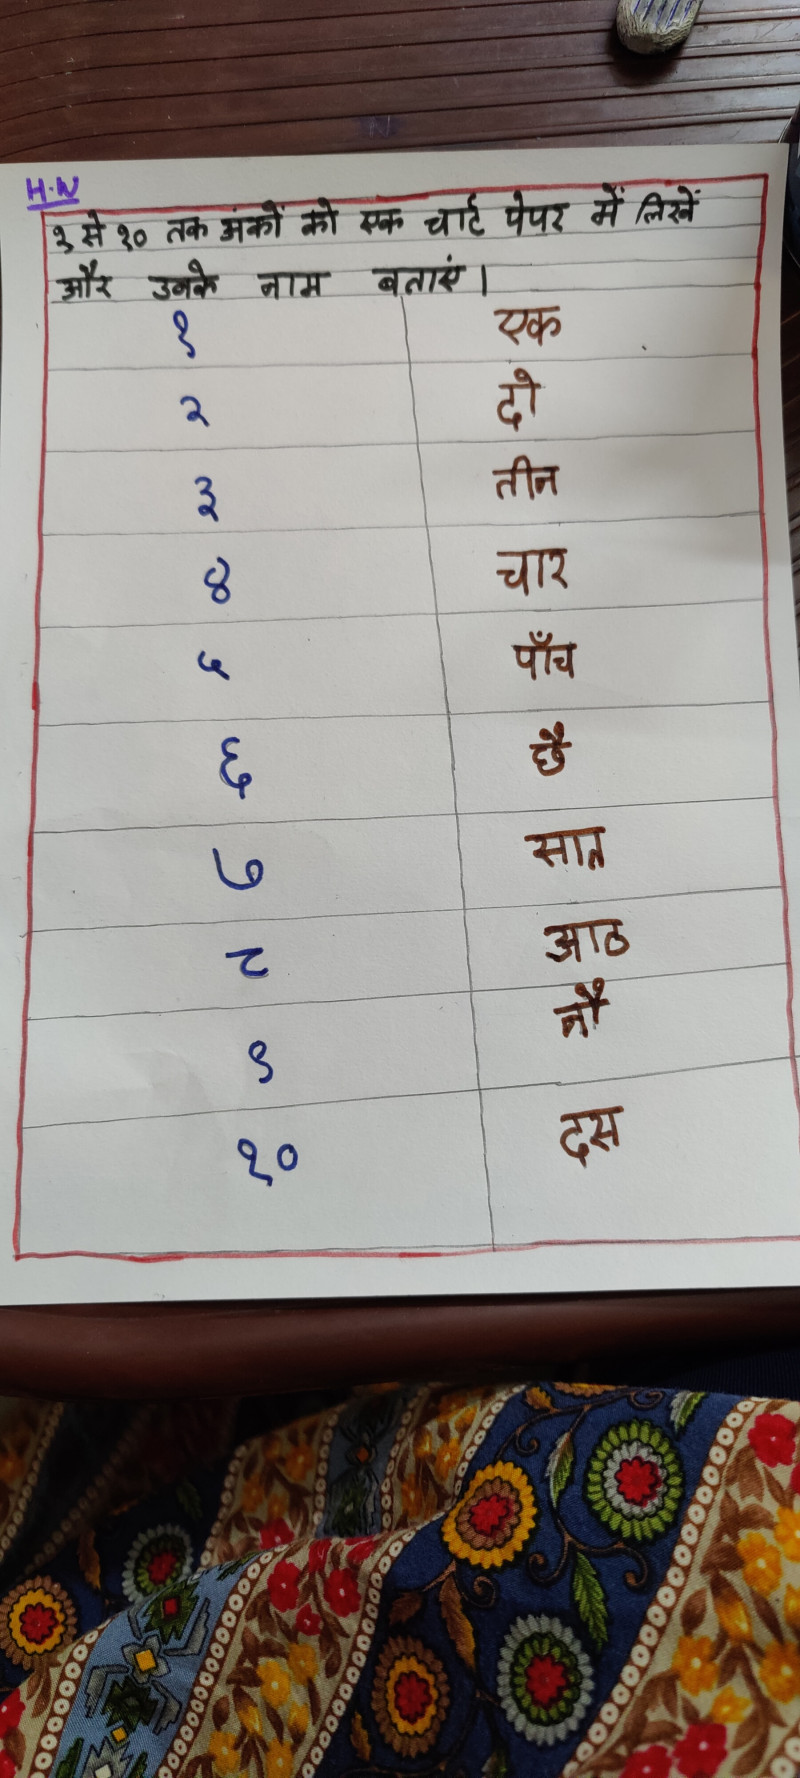 H.W
१ से १० तक अंकों को एक चार्ट पेपर में लिखें
और उनके नाम बताएं।
१ एक
२ दो
३ तीन
४ चार
५ पाँच
६ छै
७ सात
८ आठ
९ नौ
१० दस